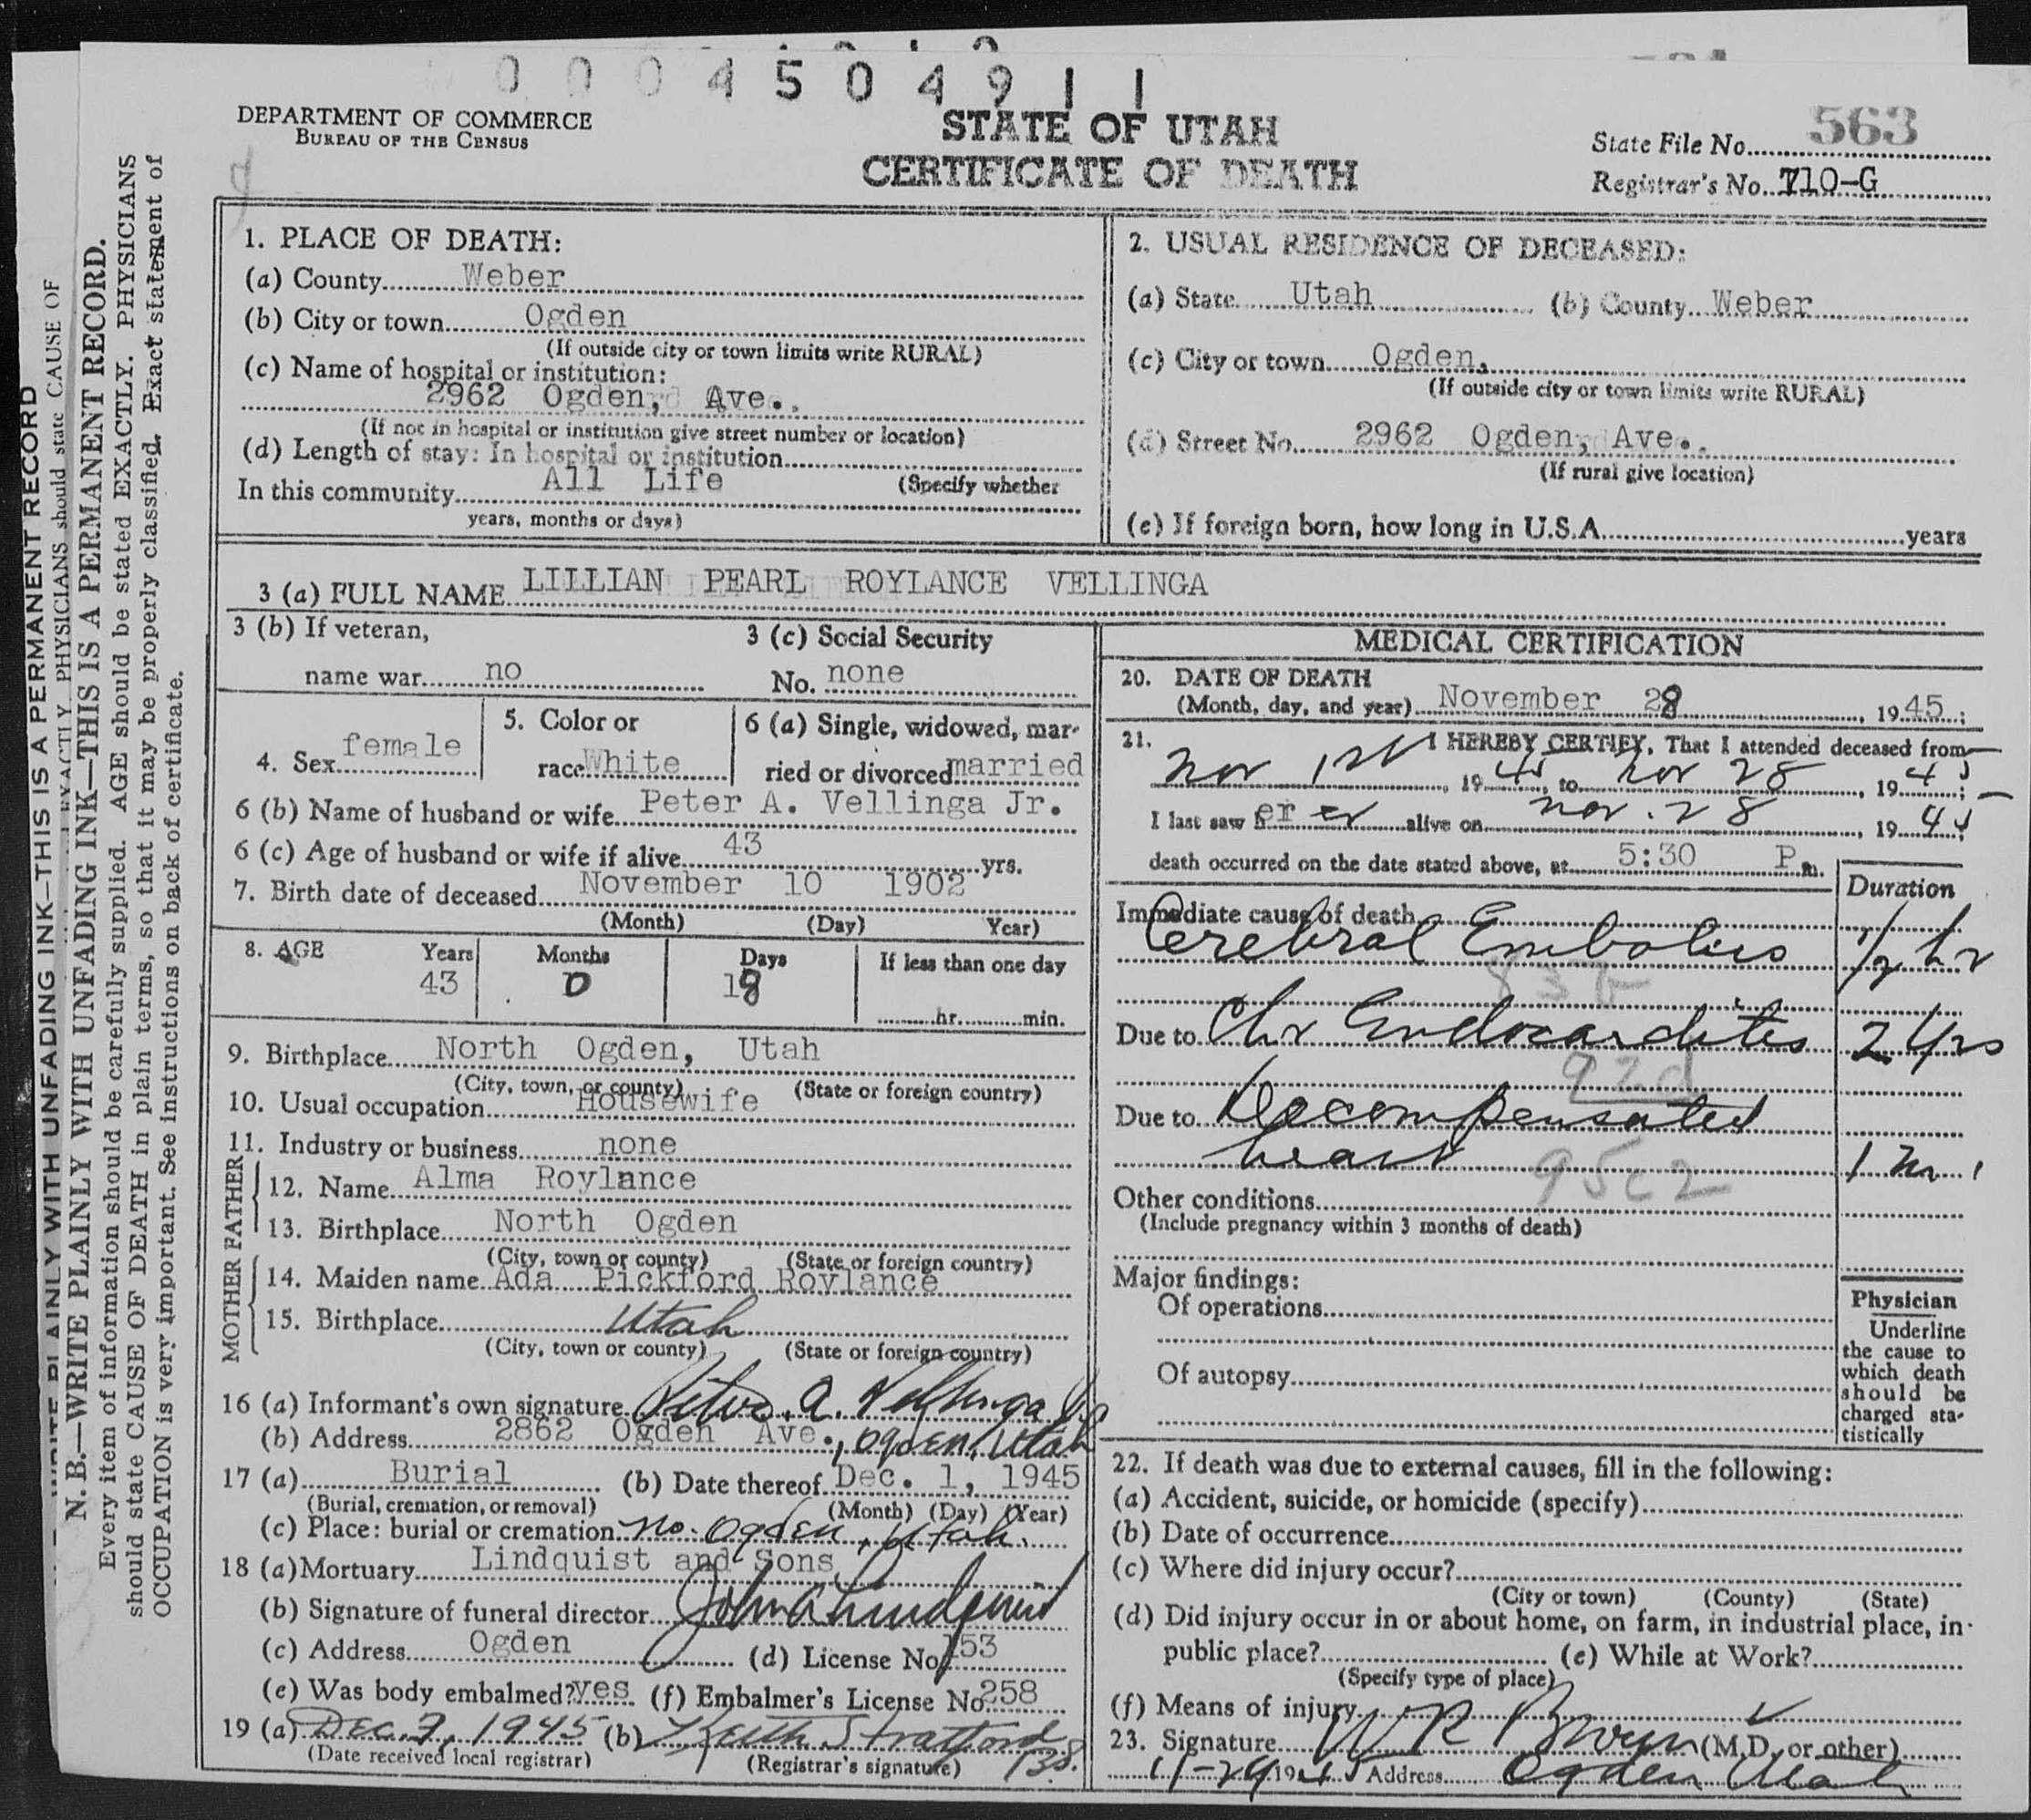 0004504911
DEPARTMENT OF COMMERCE
BUREAU OF THE CENSUS
STATE OF UTAH
CERTIFICATE OF DEATH
State File No. 563
Registrar's No. 710-G
WITH UNFADING INK—THIS IS A PERMANENT RECORD
PHYSICIANS should state CAUSE OF
N. B.—WRITE PLAINLY WITH UNFADING INK—THIS IS A PERMANENT RECORD.
Every item of information should be carefully supplied. AGE should be stated EXACTLY. PHYSICIANS
should state CAUSE OF DEATH in plain terms, so that it may be properly classified. Exact statement of
OCCUPATION is very important. See instructions on back of certificate.
1. PLACE OF DEATH:
(a) County Weber
(b) City or town Ogden
(If outside city or town limits write RURAL)
(c) Name of hospital or institution:
2962 Ogden, Ave.
(If not in hospital or institution give street number or location)
(d) Length of stay: In hospital or institution
In this community All Life (Specify whether
years, months or days)
2. USUAL RESIDENCE OF DECEASED:
(a) State Utah (b) County Weber
(c) City or town Ogden,
(If outside city or town limits write RURAL)
(d) Street No. 2962 Ogden, Ave.
(If rural give location)
(e) If foreign born, how long in U.S.A. years
3 (a) FULL NAME LILLIAN PEARL ROYLANCE VELLINGA
3 (b) If veteran,
name war no
3 (c) Social Security
No. none
4. Sex female
5. Color or
race White
6 (a) Single, widowed, mar-
ried or divorced married
6 (b) Name of husband or wife Peter A. Vellinga Jr.
6 (c) Age of husband or wife if alive 43 yrs.
7. Birth date of deceased November 10 1902
(Month) (Day) Year)
8. AGE Years Months Days If less than one day
43 0 18 hr. min.
9. Birthplace North Ogden, Utah
(City, town, or county) (State or foreign country)
10. Usual occupation Housewife
11. Industry or business none
FATHER
12. Name Alma Roylance
13. Birthplace North Ogden
(City, town or county) (State or foreign country)
MOTHER
14. Maiden name Ada Pickford Roylance
15. Birthplace Utah
(City, town or county) (State or foreign country)
16 (a) Informant's own signature Peter A. Vellinga Jr
(b) Address 2862 Ogden Ave., Ogden, Utah
17 (a) Burial (b) Date thereof Dec. 1, 1945
(Burial, cremation, or removal) (Month) (Day) (Year)
(c) Place: burial or cremation No. Ogden, Utah.
18 (a) Mortuary Lindquist and Sons
(b) Signature of funeral director John A Lindquist
(c) Address Ogden (d) License No. 153
(e) Was body embalmed? yes (f) Embalmer's License No. 258
19 (a) Dec. 3, 1945 (b) Keith Stratford
(Date received local registrar) (Registrar's signature) 138.
MEDICAL CERTIFICATION
20. DATE OF DEATH
(Month, day, and year) November 28, 1945;
21. I HEREBY CERTIFY, That I attended deceased from
Nov 1st, 1945, to Nov 28, 1945;
I last saw her er alive on Nov. 28, 1945;
death occurred on the date stated above, at 5:30 P.m.
Duration
Immediate cause of death
Cerebral Embolus 1/2 hr
83b
Due to Chr Endocarditis 2 yrs
92d
Due to Decompensated
heart 1 m.
95c2
Other conditions
(Include pregnancy within 3 months of death)
Major findings:
Of operations
Of autopsy
Physician
Underline
the cause to
which death
should be
charged sta-
tistically
22. If death was due to external causes, fill in the following:
(a) Accident, suicide, or homicide (specify)
(b) Date of occurrence
(c) Where did injury occur?
(City or town) (County) (State)
(d) Did injury occur in or about home, on farm, in industrial place, in
public place? (e) While at Work?
(Specify type of place)
(f) Means of injury
23. Signature W R Brown (M.D. or other)
11-29 1945 Address Ogden Utah